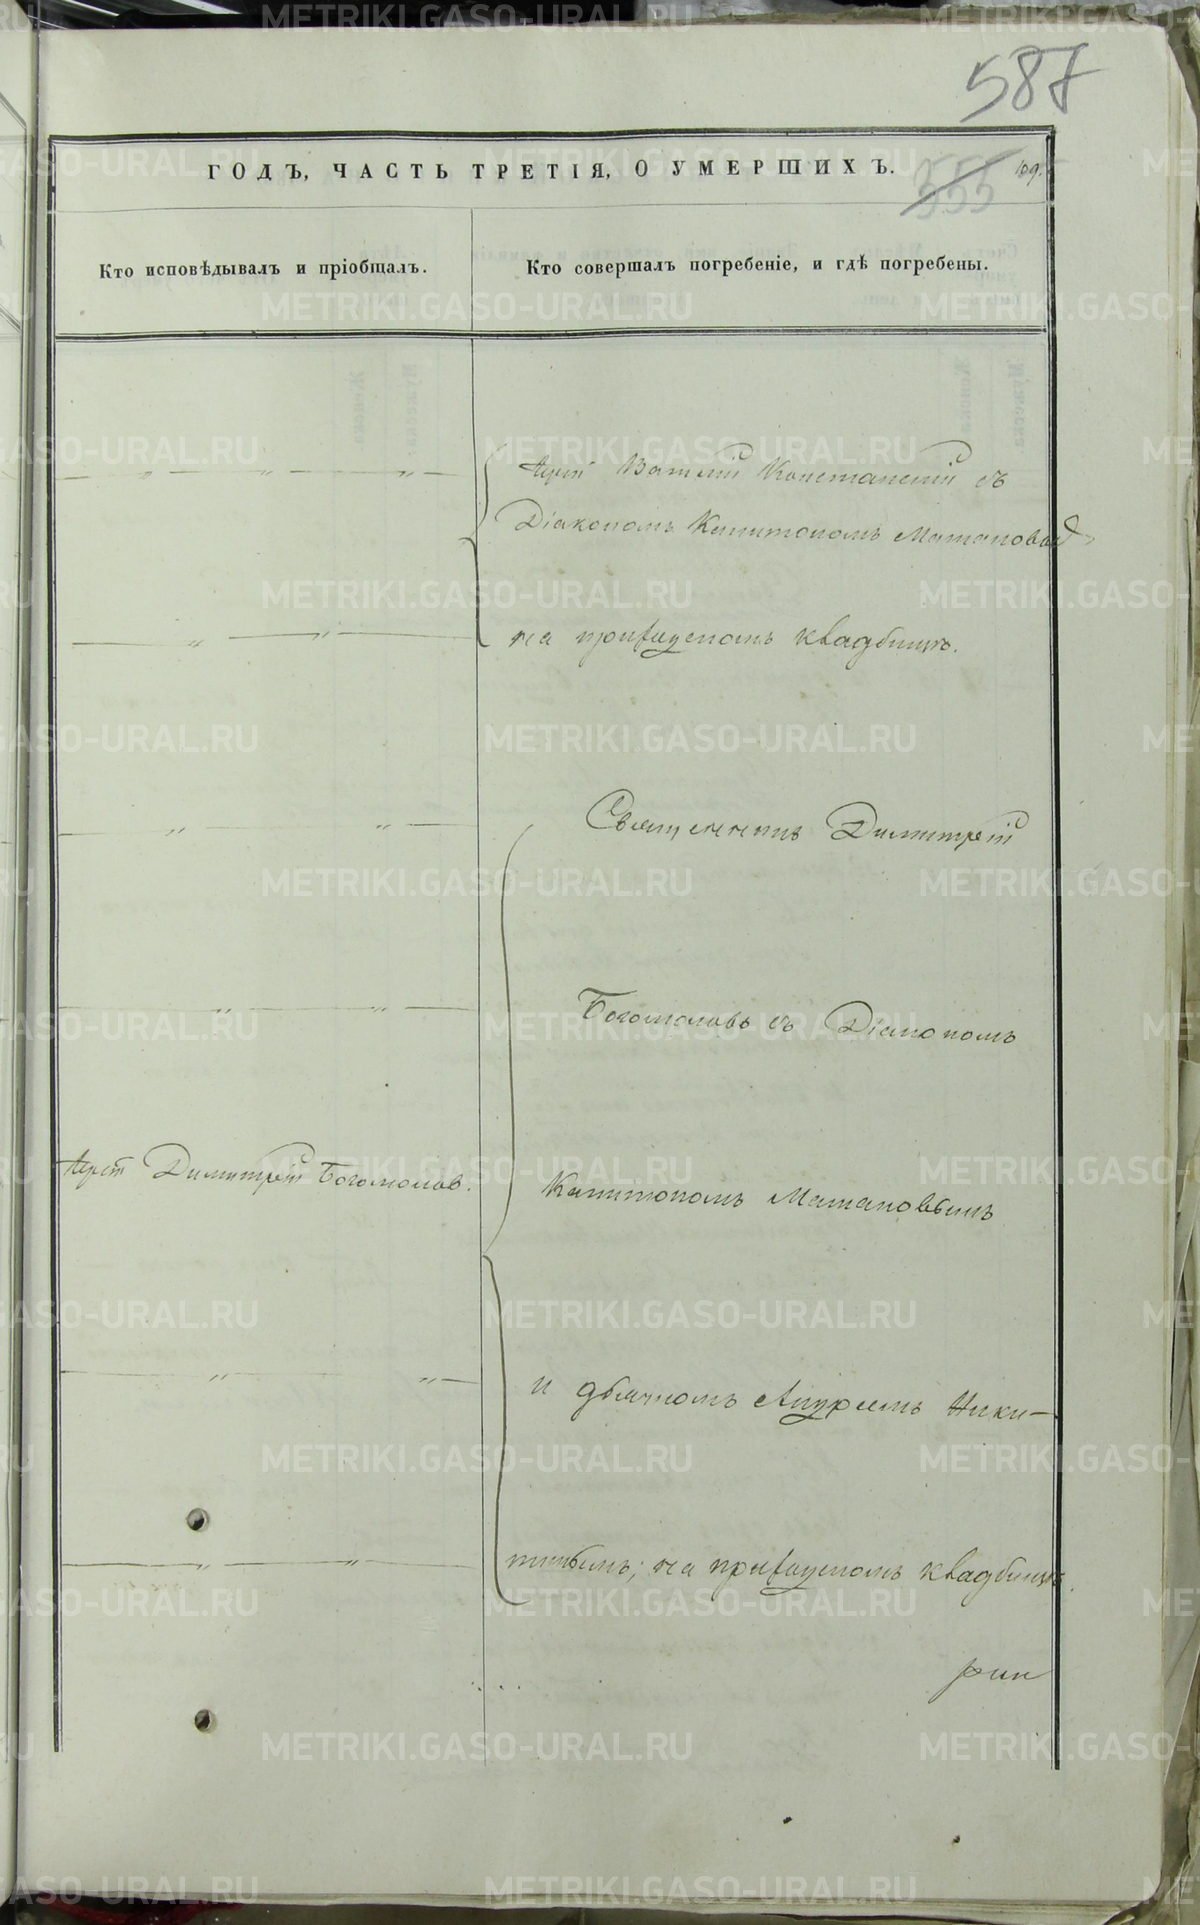 587
ГОДЪ, ЧАСТЬ ТРЕТІЯ, О УМЕРШИХЪ.
355
109.
Кто исповѣдывалъ и пріобщалъ.
Кто совершалъ погребеніе, и гдѣ погребены.
Іерей Константскій съ
Діакономъ Капитономъ Матановы
на приходскомъ кладбищѣ.
Священникъ Димитрій
Богомоловъ съ Діакономъ
Іерей Димитрій Богомоловъ.
Капитономъ Матановымъ
и дьячкомъ Андреемъ Ники-
тинымъ; на приходскомъ кладбищѣ.
METRIKI.GASO-URAL.RU